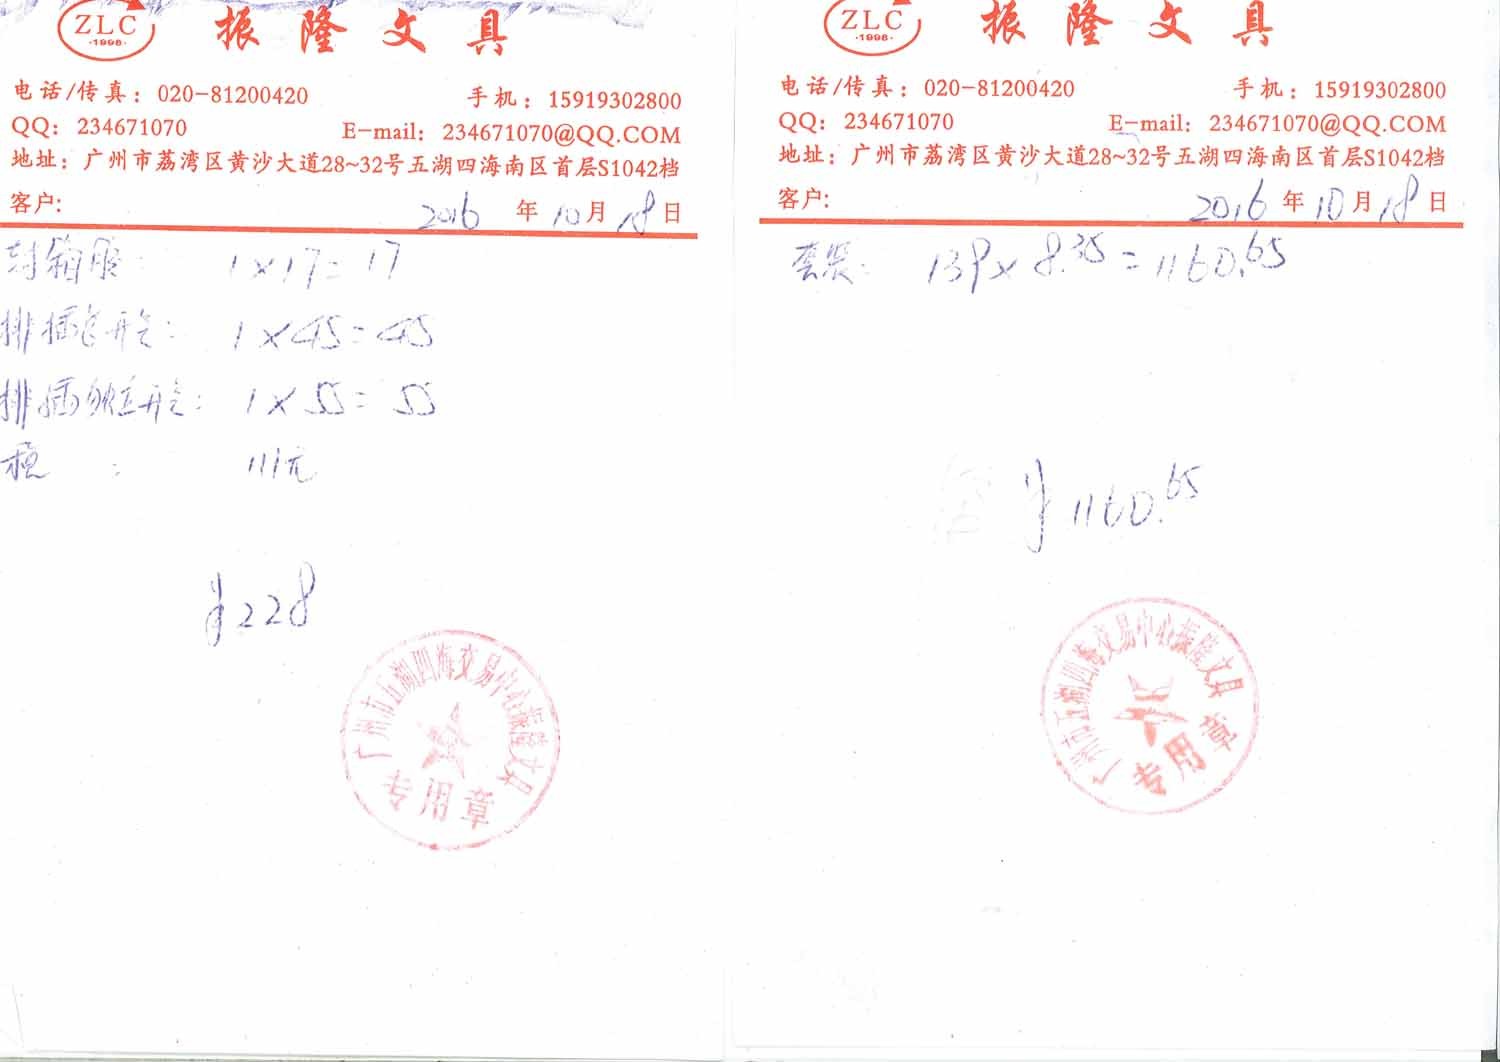 ZLC
·1998·
振隆文具
电话/传真：020-81200420 手机：15919302800
QQ：234671070 E-mail：234671070@QQ.COM
地址：广州市荔湾区黄沙大道28~32号五湖四海南区首层S1042档
客户: 2016 年 10 月 18 日
封箱胶： 1×17=17
排插 形： 1×45=45
排插 形： 1×55=55
税 ： 111元
¥228
广州市五湖四海交易中心振隆文具
专用章
ZLC
·1998·
振隆文具
电话/传真：020-81200420 手机：15919302800
QQ：234671070 E-mail：234671070@QQ.COM
地址：广州市荔湾区黄沙大道28~32号五湖四海南区首层S1042档
客户: 2016 年 10 月 18 日
套装： 139×8.35=1160.65
¥1160.65
广州市五湖四海交易中心振隆文具
专用章